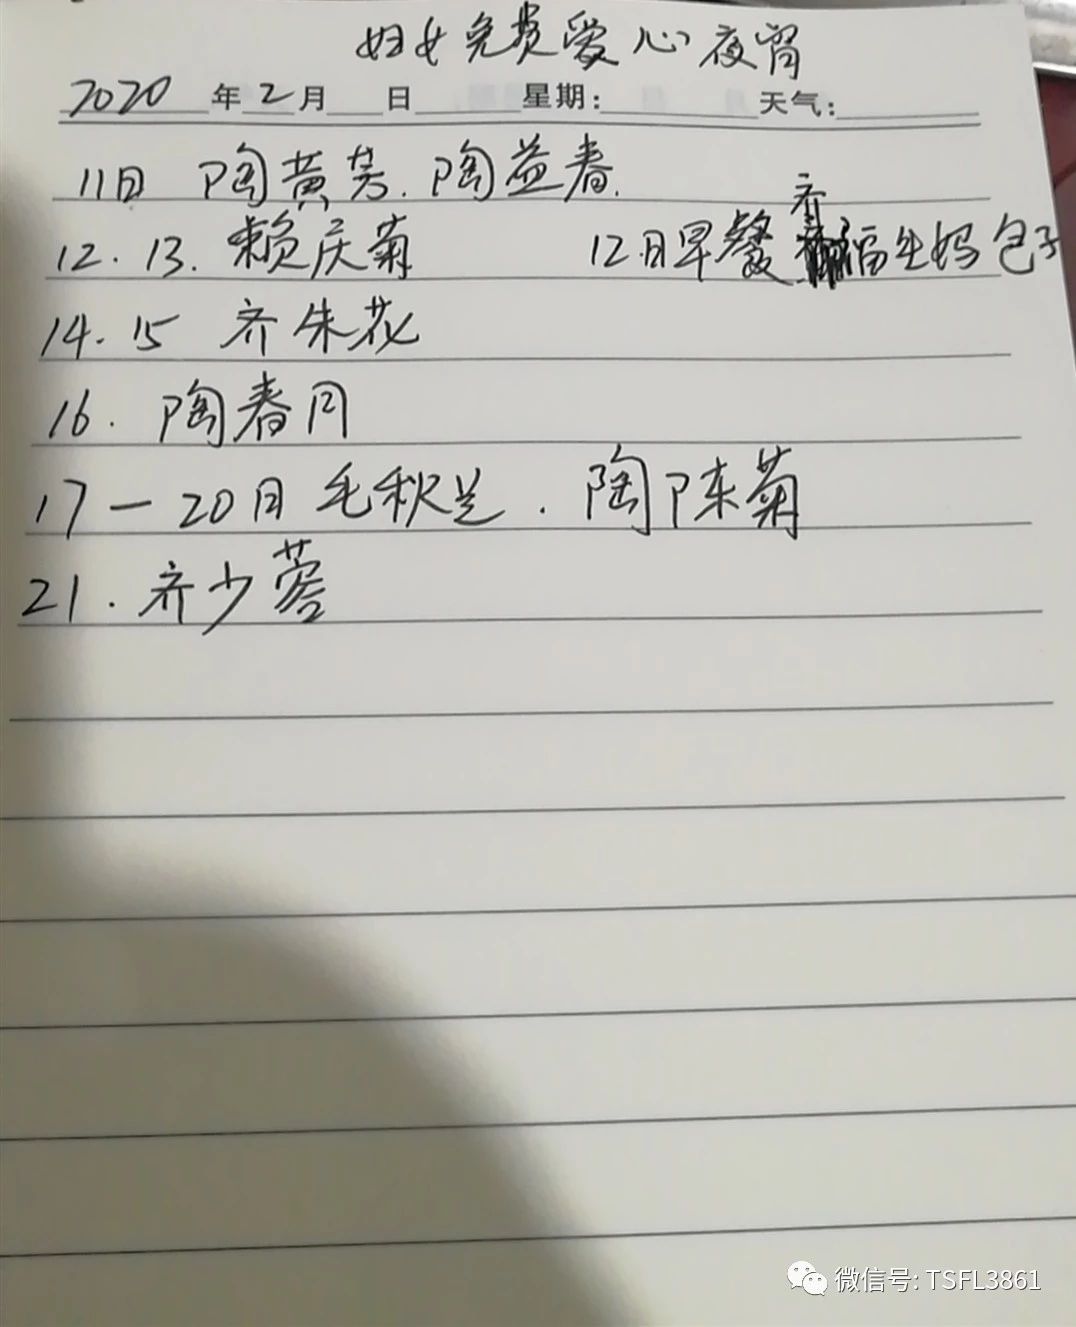 妇女免费爱心夜宵
2020年2月 日 星期: 天气:
11日 陶黄芳.陶益春.
12.13.赖庆菊 12日早餐 齐福生妈包子
14.15 齐朱花
16.陶春月
17-20日毛秋兰.陶陈菊
21.齐少蓉
微信号: TSFL3861